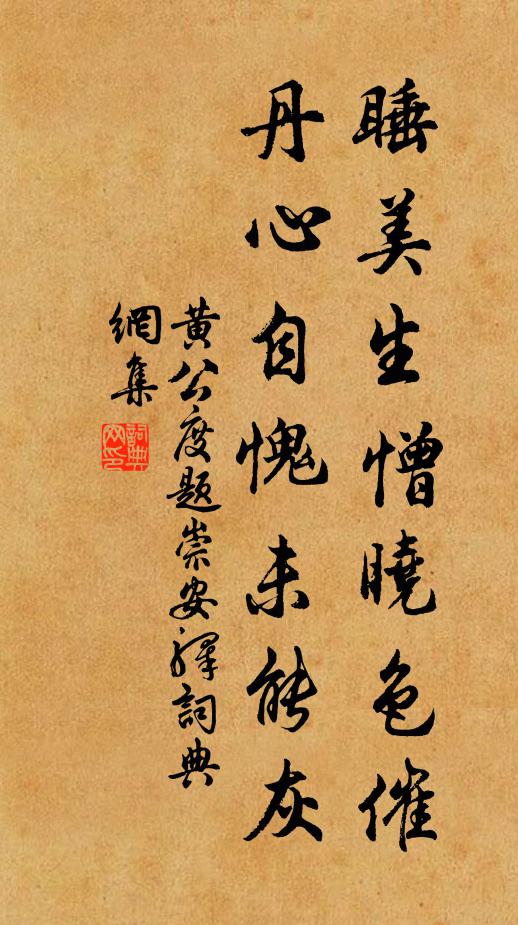 睡美生憎曉色催
丹心自愧未能灰
黄公度題崇安驛詞典
網集
詞典網印